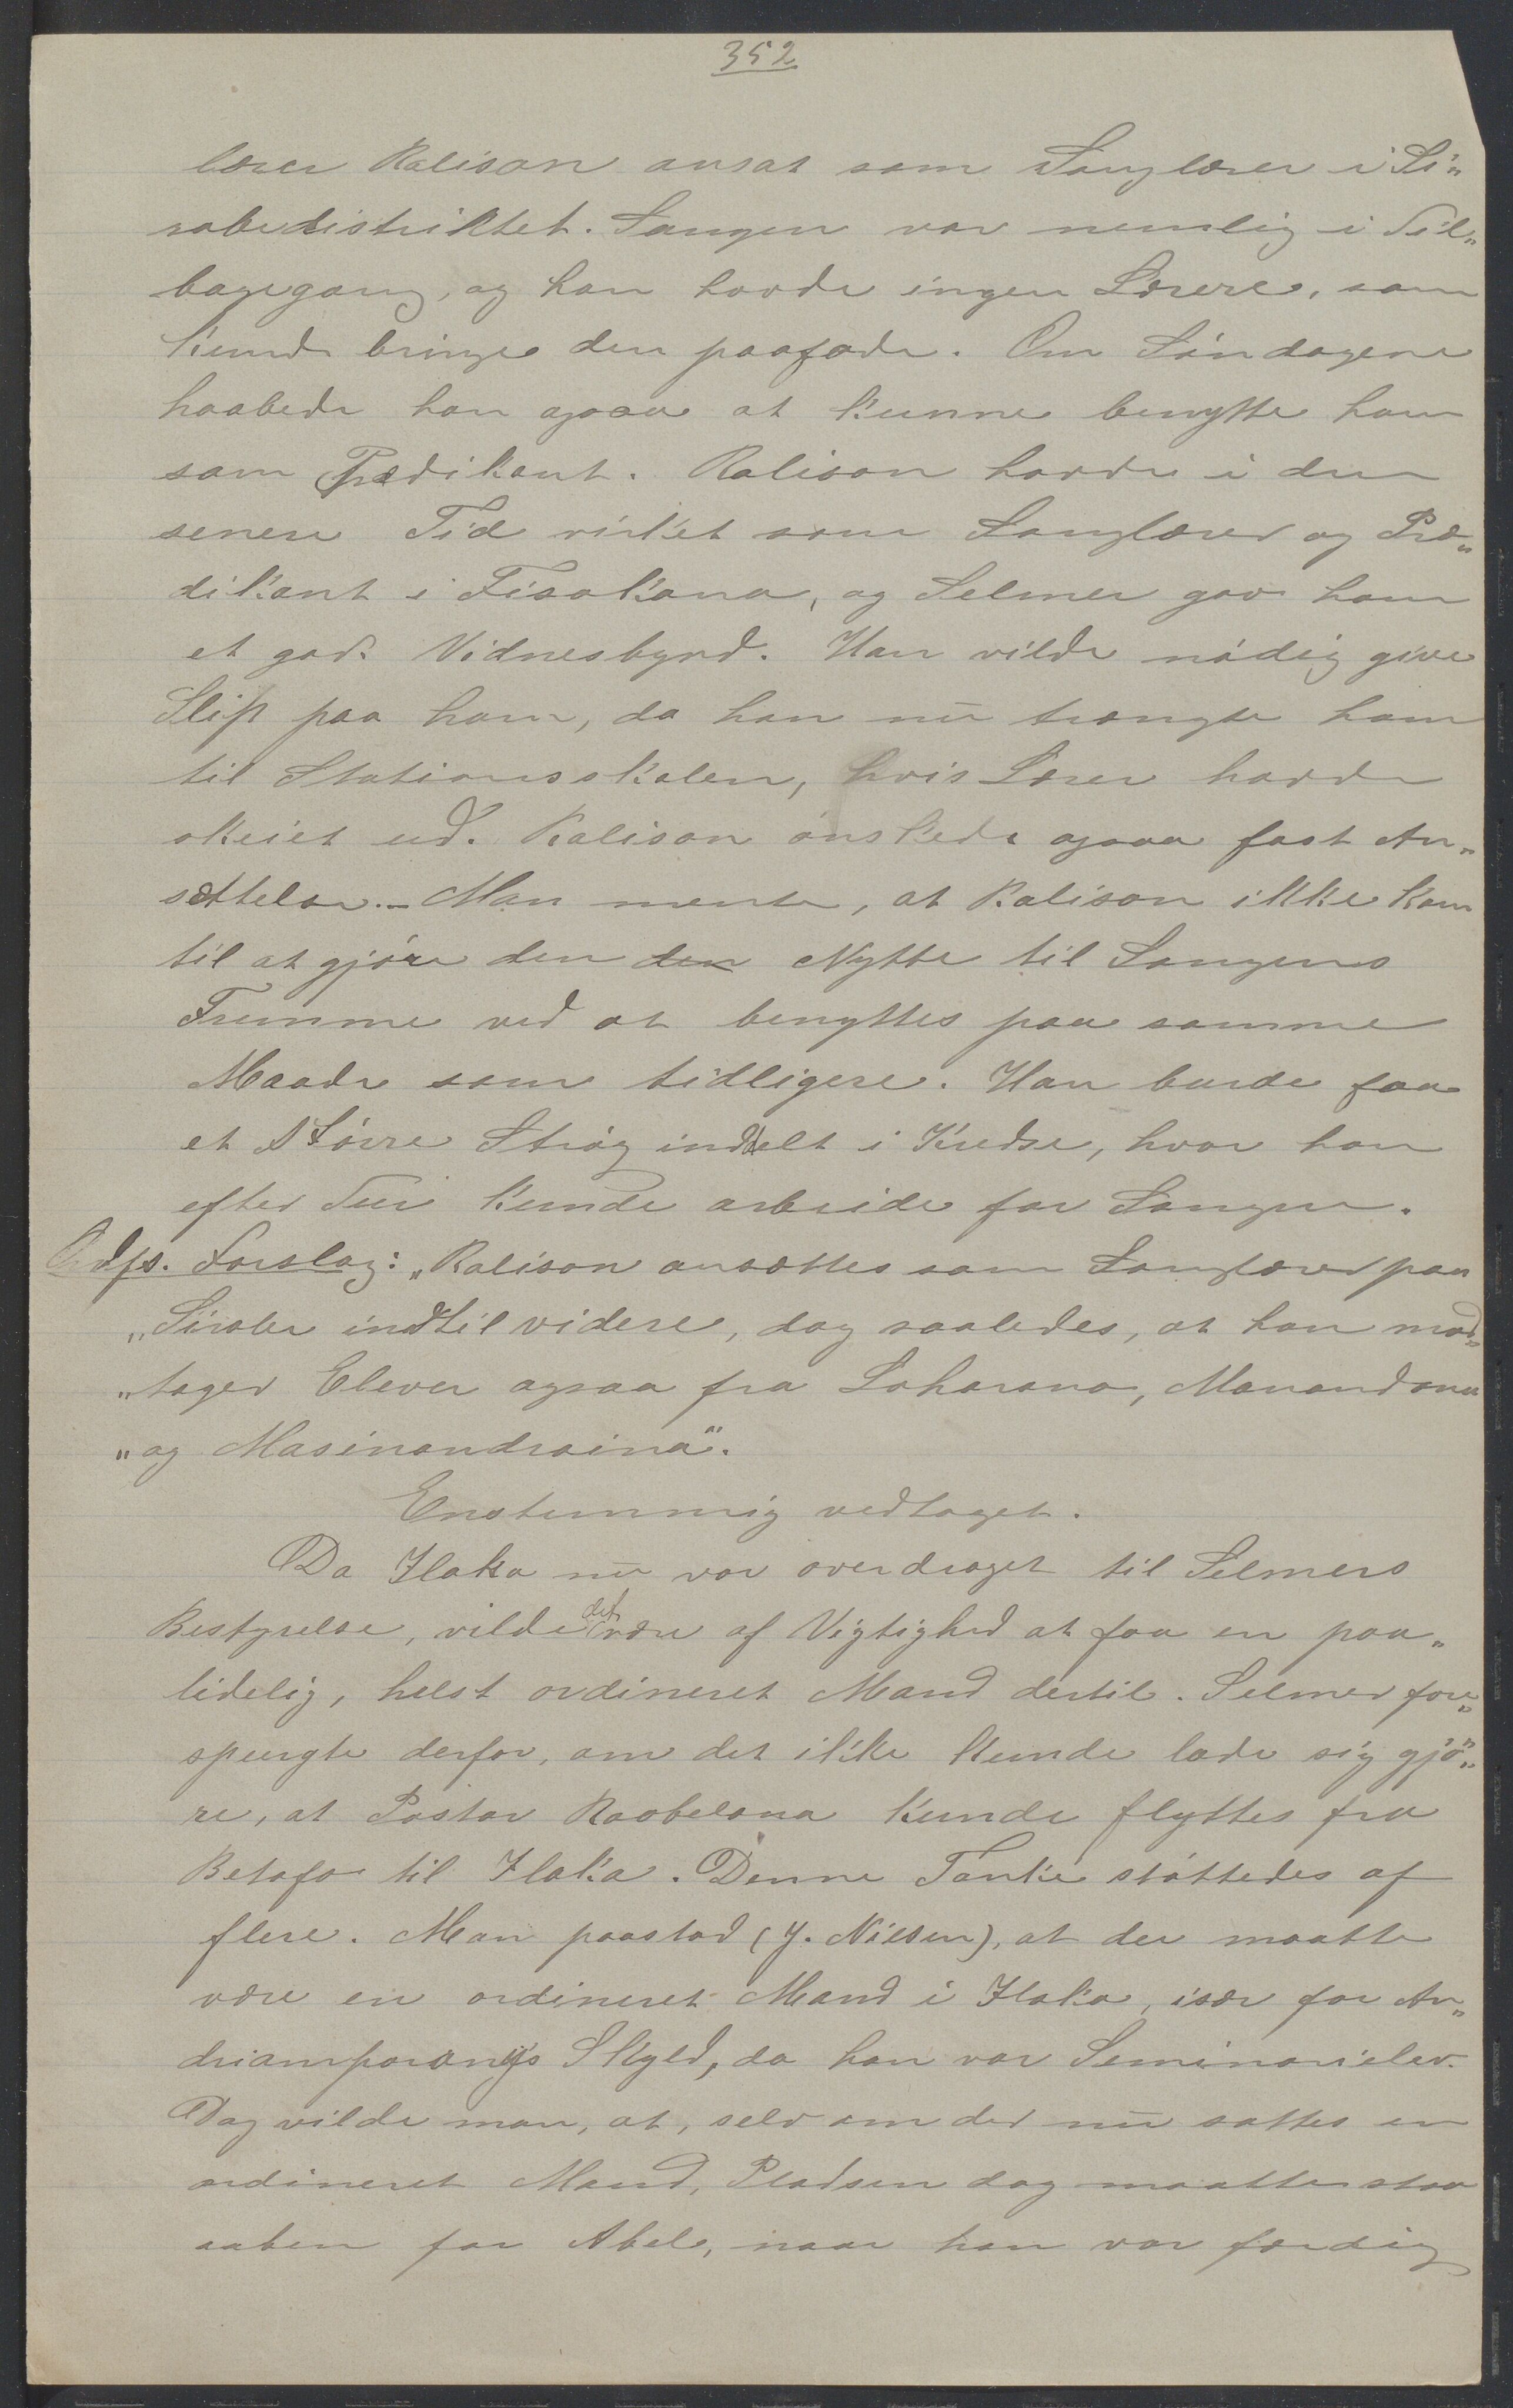 352
lærer Ralison ansat som Sanglærer i Si„
rabedistriktet. Sangen var nemlig i Til„
bagegang, og han havde ingen Lærere, som
kunde bringe den paafode. Om Søndagene
haabede han ogsaa at kunne benytte ham
som Prædikant. Ralison havde i den
senere Tid virket som Sanglærer og Præ„
dikant i Fisakana, og Selmer gav ham
et godt Vidnesbyrd. Han vilde nødig give
Slip paa ham, da han nu trængte ham
til Stationsskolen, hvis Lærer havde
skeiet ud. Ralison ønskede ogsaa fast An„
sættelse. – Man mente, at Ralison ikke kom
til at gjøre den den Nytte til Sangens
Fremme ved at benyttes paa samme
Maade som tidligere. Han burde faa
et større Strøg inddelt i Kredse, hvor han
efter Tur kunde arbeide for Sangen.
Ordfs. Forslag: „Ralison ansættes som Sanglærer paa
„Sirabe indtil videre, dog saaledes, at han mod„
„tager Elever ogsaa fra Loharano, Manandona
„og Masinandraina".
Enstemmig vedtaget.
Da Ilaka nu var overdraget til Selmers
Bestyrelse, vilde det være af Vigtighed at faa en paa„
lidelig, helst ordineret Mand dertil. Selmer fore„
spurgte derfor, om det ikke kunde lade sig gjø„
re, at Pastor Raobelona kunde flyttes fra
Betafo til Ilaka. Denne Tanke støttedes af
flere. Man paastod (J. Nilsen), at der maatte
være en ordineret Mand i Ilaka, især for An„
driamparanys Skyld, da han var Seminarielev.
Dog vilde man, at, selv om der nu sattes en
ordineret Mand, Pladsen dog maatte staa
aaben for Abel, naar han var færdig